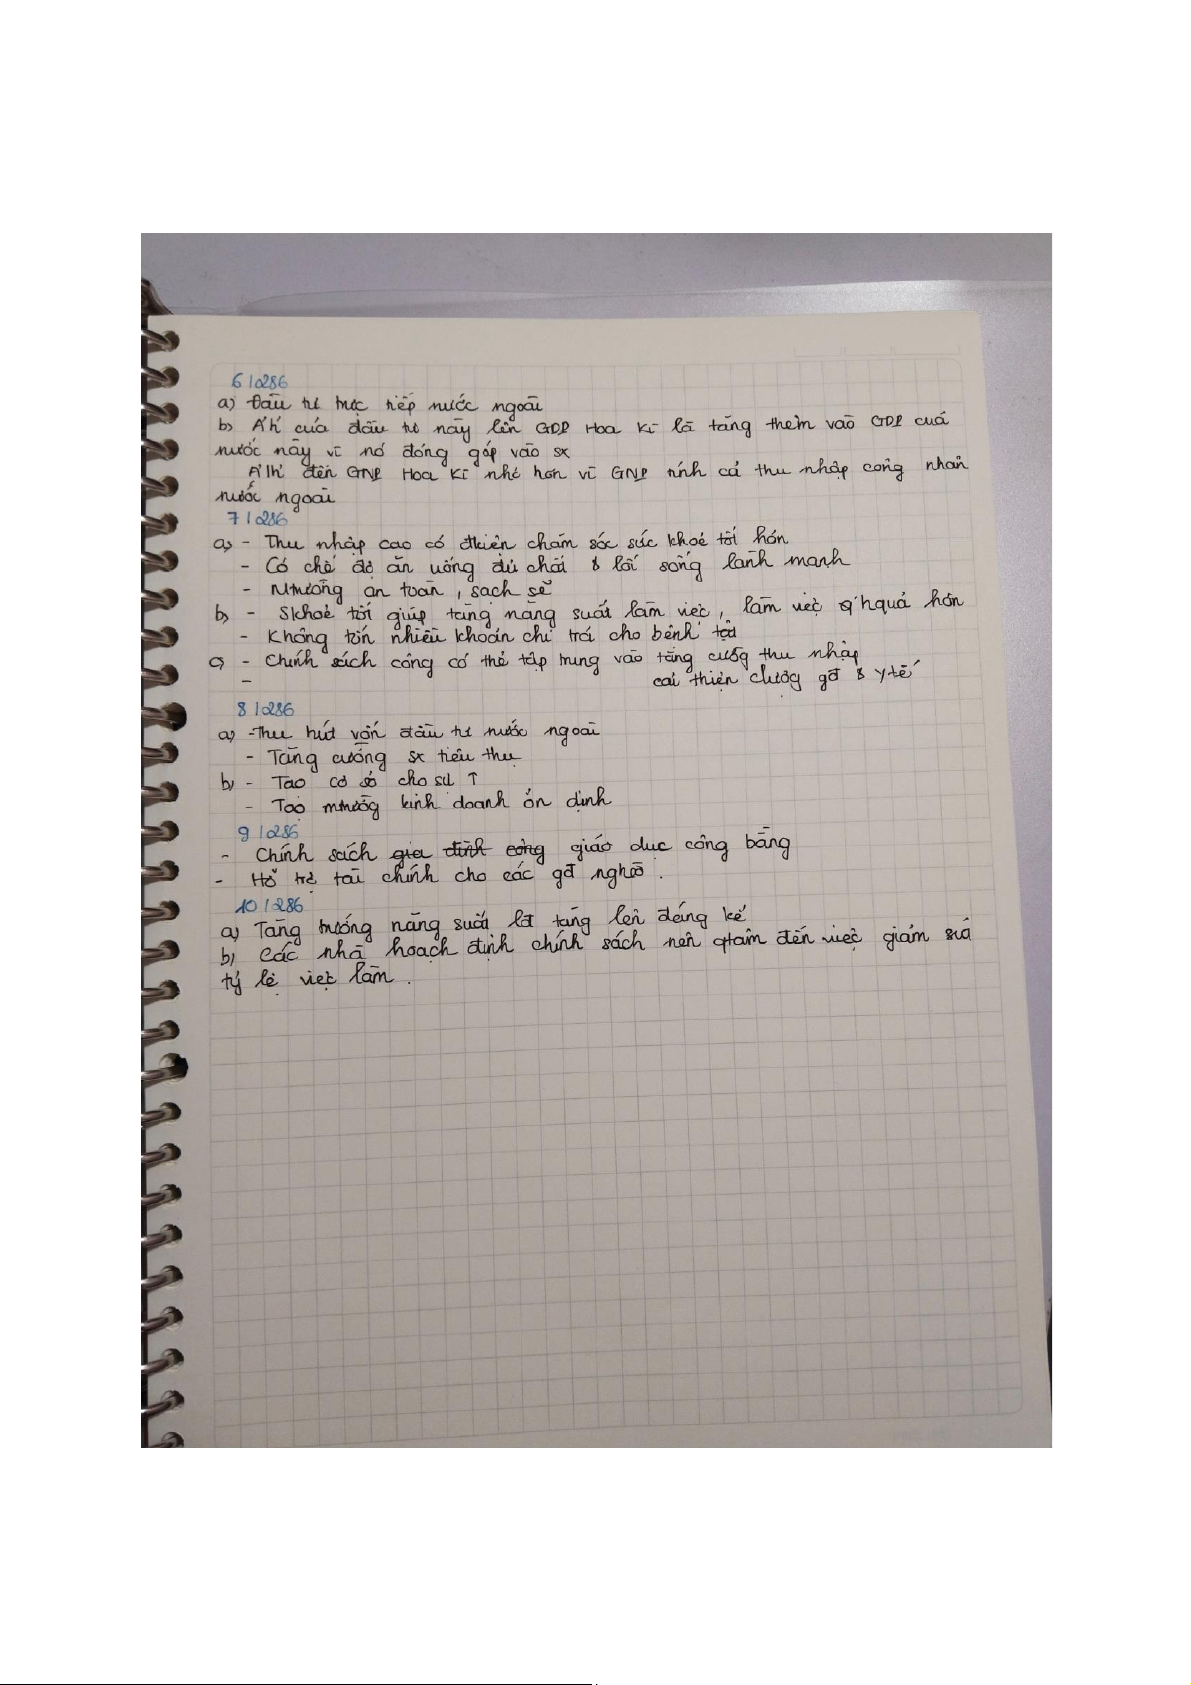 6/286
a) Đầu tư trực tiếp nước ngoài
b) A'h' của đầu tư này lên GDP Hoa Kì là tăng thêm vào GDP cuả
nước này vì nó đóng góp vào sx
A'h' đến GNP Hoa Kì nhỏ hơn vì GNP tính cả thu nhập công nhân
nước ngoài
7/286
a) - Thu nhập cao có đkiện chăm sóc sức khoẻ tốt hơn
- Có chế độ ăn uống đủ chất & lối sống lành mạnh
- Mtrường an toàn, sạch sẽ
b) - Skhoẻ tốt giúp tăng năng suất làm việc, làm việc hquả hơn
- Không tốn nhiều khoản chi trả cho bệnh tật
c) - Chính sách công có thể tập trung vào tăng cường thu nhập
- cải thiện clượng gđ & y tế
8/286
a) - Thu hút vốn đầu tư nước ngoài
- Tăng cường sx tiêu thụ
b) - Tạo cơ sở cho sự ↑
- Tạo mtrường kinh doanh ổn định
9/286
- Chính sách gia đình công giáo dục công bằng
- Hỗ trợ tài chính cho các gđ nghèo.
10/286
a) Tăng trưởng năng suất là tăng lên đáng kể
b) Các nhà hoạch định chính sách nên qtâm đến việc giảm
tỷ lệ việc làm.